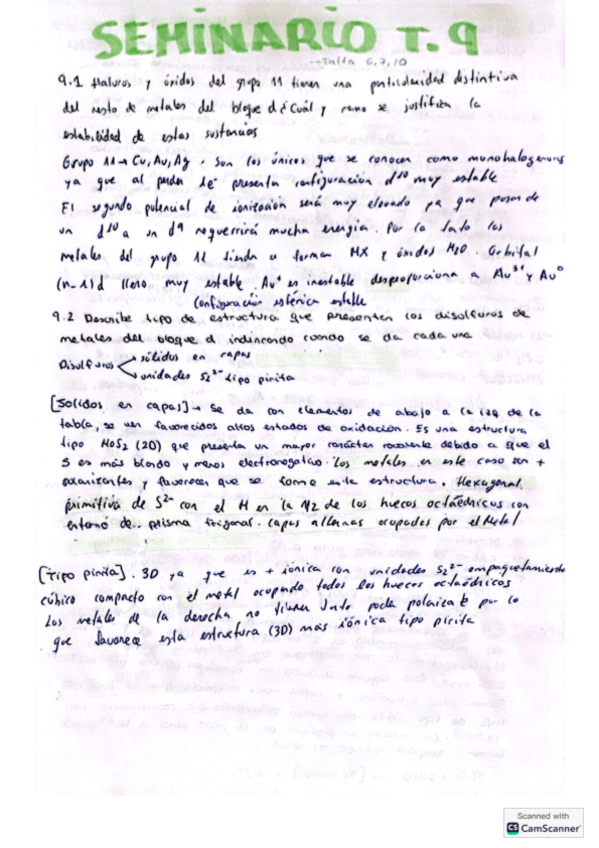 SEMINARIO T. 9
→ falta 6, 7, 10
9.1 Haluros y óxidos del grupo 11 tienen una particularidad distintiva
del resto de metales del bloque d ¿Cuál y como se justifica la
estabilidad de estas sustancias
Grupo 11 → Cu, Au, Ag. Son los únicos que se conocen como monohalogenuros
ya que al perder 1e⁻ presenta configuración d¹⁰ muy estable
El segundo potencial de ionización será muy elevado ya que pasar de
un d¹⁰ a un d⁹ requerirá mucha energía. Por lo tanto los
metales del grupo 11 tienden a formar MX y óxidos M₂O. Orbital
(n-1)d lleno muy estable. Au⁺ es inestable desproporciona a Au³⁺ y Au⁰
Configuración esférica estable
9.2 Describe tipo de estructura que presentan los disulfuros de
metales del bloque d indicando cuando se da cada una
Disulfuros sólidos en capas
unidades S₂²⁻ tipo pirita
[Solidos en capas] → Se da con elementos de abajo a la izq de la
tabla, se ven favorecidos altos estados de oxidación. Es una estructura
tipo MoS₂ (2D) que presenta un mayor carácter covalente debido a que el
S es más blando y menos electronegativo. Los metales en este caso son +
polarizantes y favorecen que se forme esta estructura. Hexagonal
primitiva de S²⁻ con el M en la 1/2 de los huecos octaédricos con
entorno de prisma trigonal. capas alternas ocupadas por el Metal
[Tipo pirita]. 3D ya que es + iónica con unidades S₂²⁻ empaquetamiento
cúbico compacto con el metal ocupando todos los huecos octaédricos
Los metales de la derecha no tienen tanto poder por lo
que favorece esta estructura (3D) más iónica tipo pirita
Scanned with
CS CamScanner